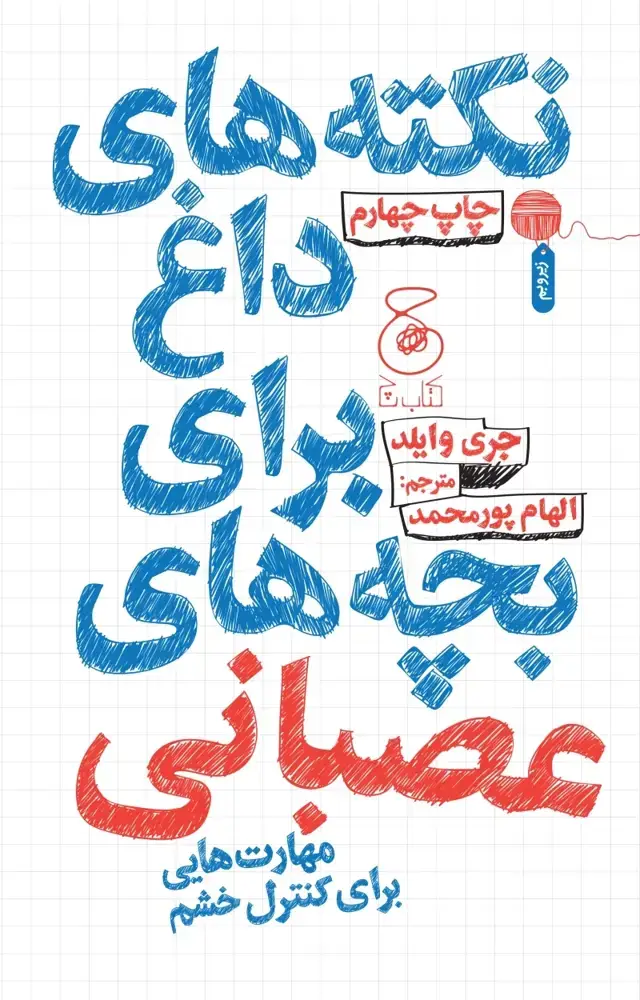 نکته‌های
داغ
برای
بچه‌های
عصبانی
مهارت‌هایی
برای کنترل خشم
چاپ چهارم
زیر و بم
کتاب چ
جری وایلد
مترجم:
الهام پورمحمد